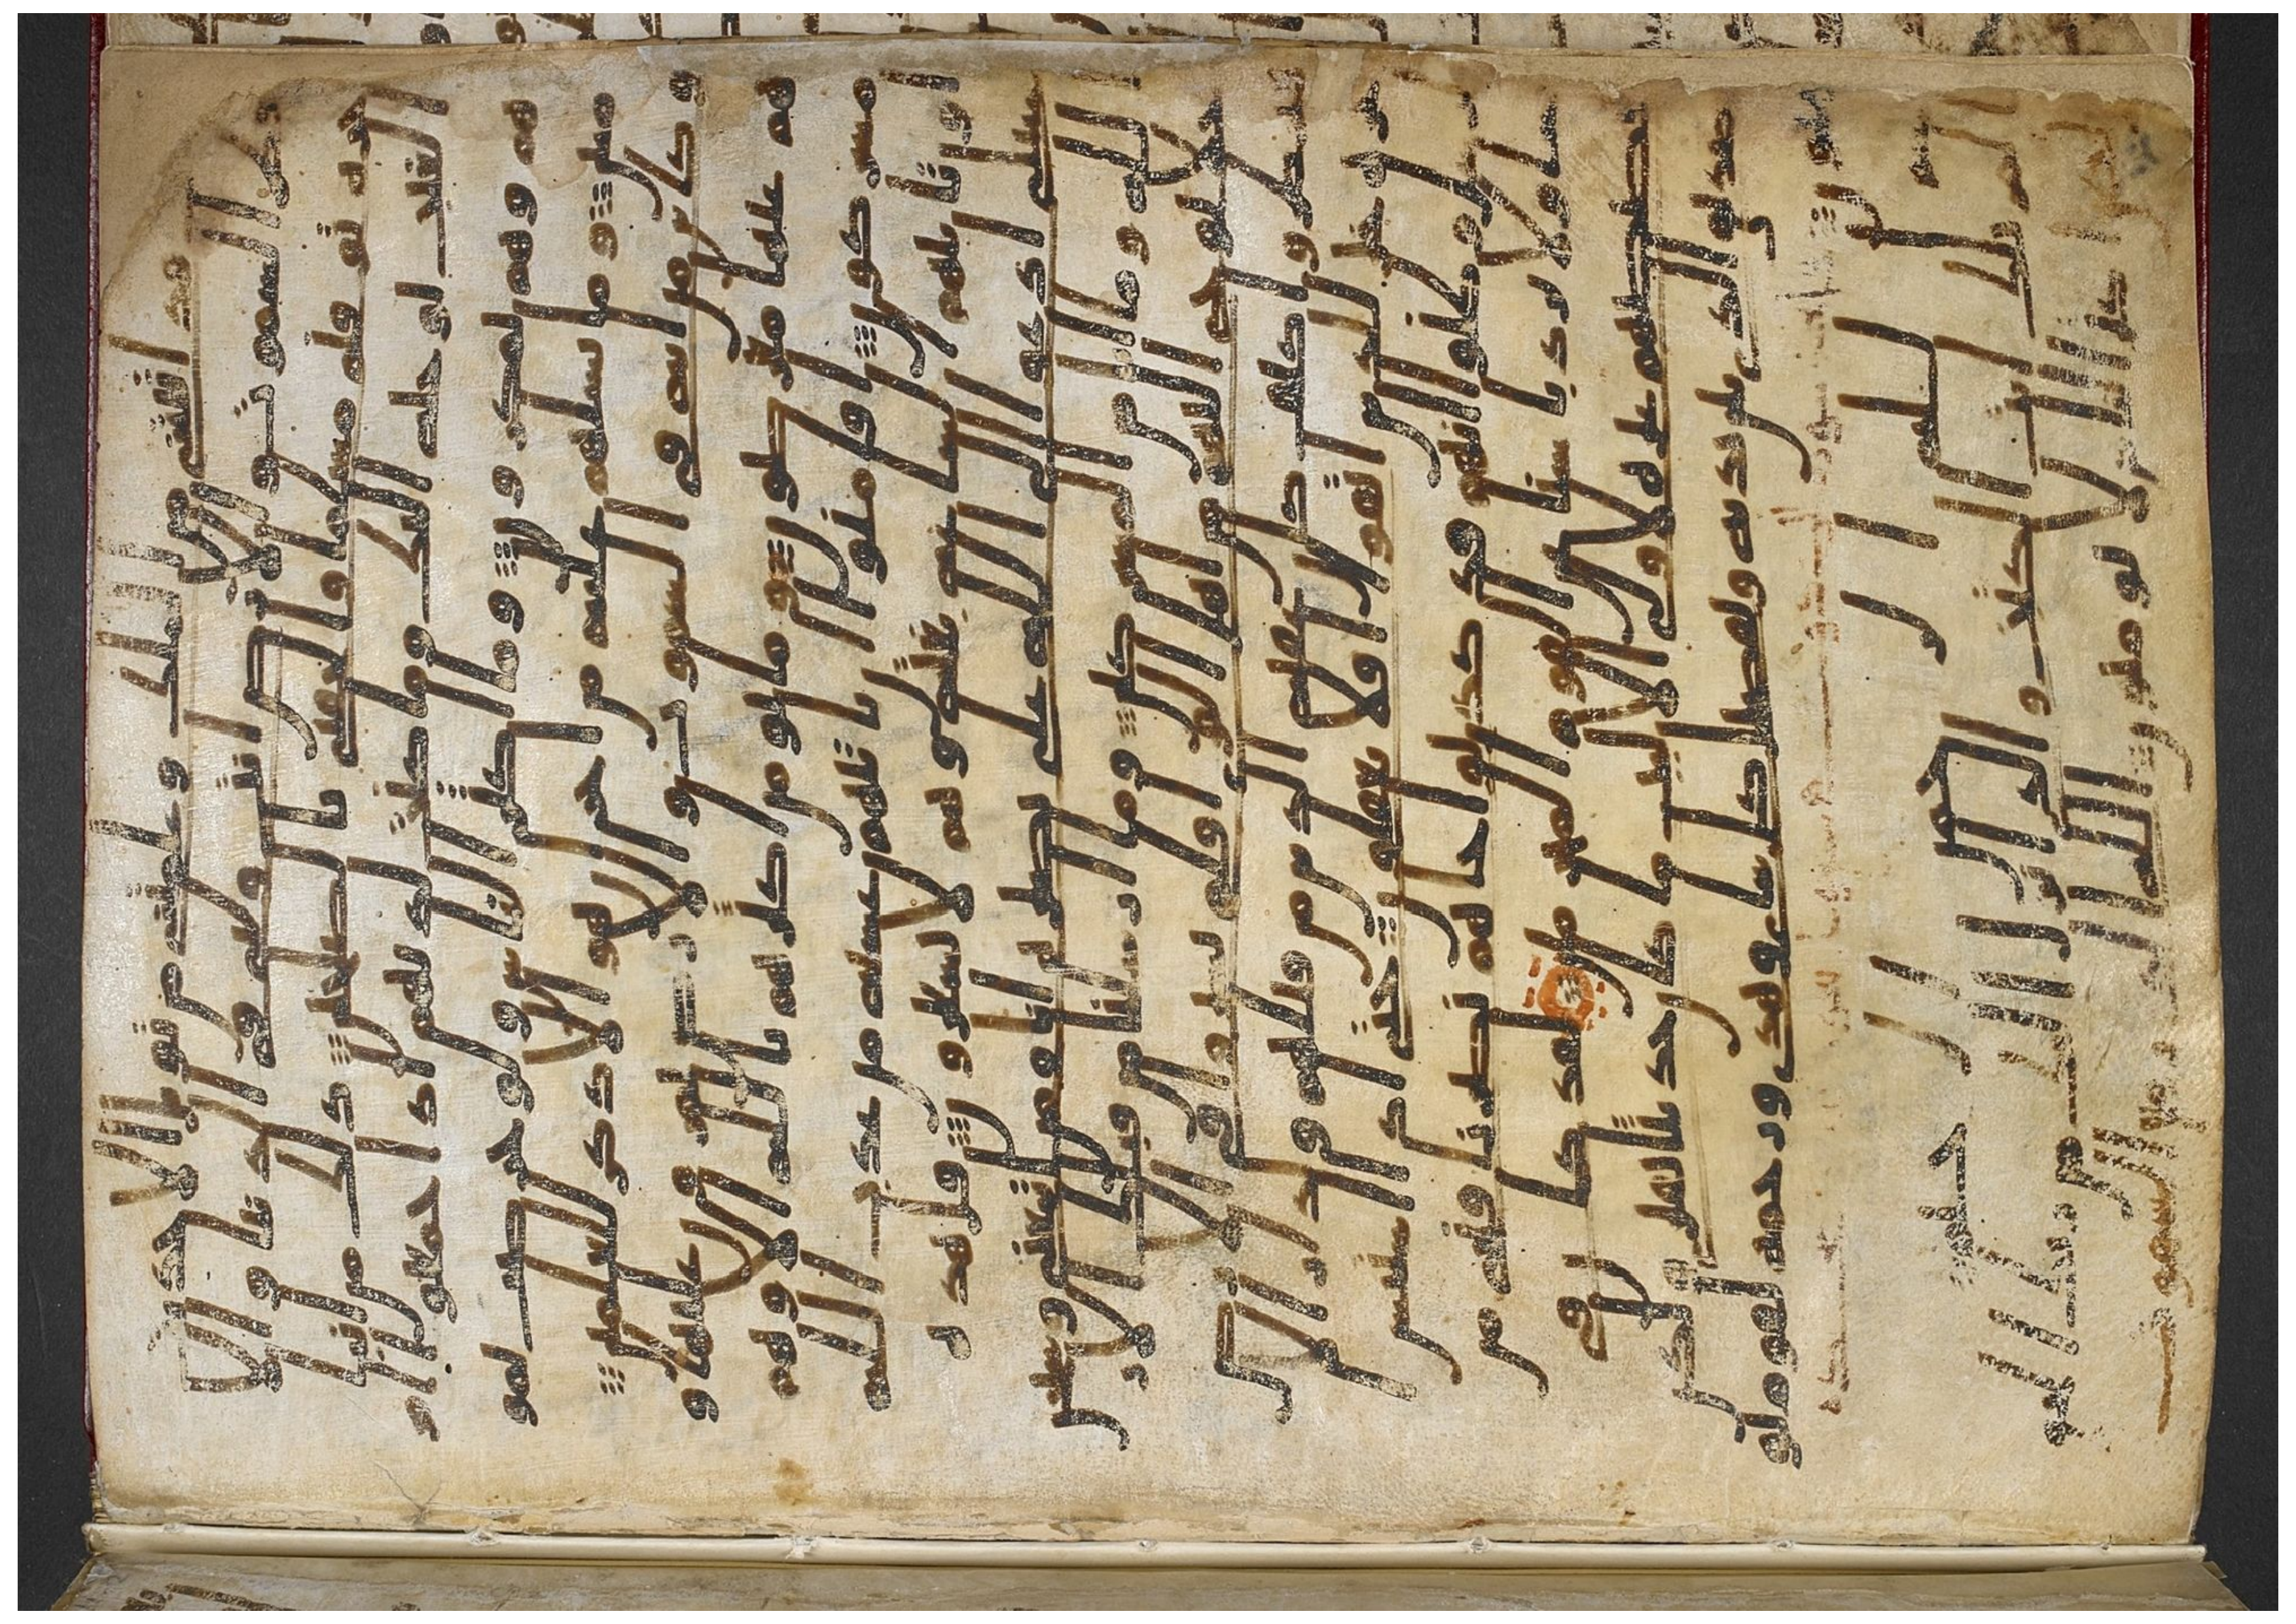 قد اتيتني من الملك وعلمتني من تويل الا
حديث فطر السموت والارض انت ولي في الدنيا والا
خره توفني مسلما والحقني بالصلحين ذلك من انبا
الغيب نوحيه اليك وما كنت لديهم اذ اجمعوا ا
مرهم وهم يمكرون وما اكثر الناس ولو حرصت بمو
منين وما تسلهم عليه من اجر ان هو الا ذكر للعلمين
وكاين من ايه في السموت والارض يمرون عليها و
هم عنها معرضون وما يومن اكثرهم بالله الا وهم
مشركون افامنوا ان تاتيهم غشيه من عذاب الله
او تاتيهم الساعه بغته وهم لا يشعرون قل هذه
سبيلي ادعوا الى الله على بصيره انا ومن اتبعني وسبحن
الله وما انا من المشركين وما ارسلنا من قبلك الا ر
جلا نوحي اليهم من اهل القرى افلم يسيروا في الار
ض فينظروا كيف كان عقبه الذين من قبلهم ولدار الا
خره خير للذين اتقوا افلا تعقلون حتى اذا استيس
الرسل وظنوا انهم قد كذبوا جاهم نصرنا فنجي من
نشا ولا يرد باسنا عن القوم المجرمين لقد كان في
قصصهم عبره لاولي الالبب ما كان حديثا يفترى ولكن
تصديق الذي بين يديه وتفصيل كل شي وهدى ورحمه لقوم يومنون
بسم الله الرحمن الرحيم
المر تلك ايت الكتب والذي انزل اليك من ربك الحق
ولكن اكثر الناس لا يومنون الله الذي